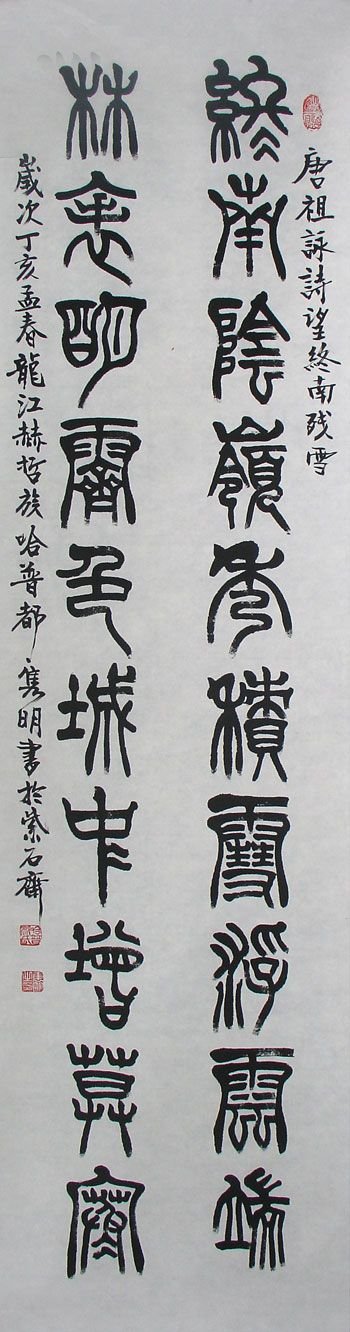 唐祖詠詩望終南残雪
終南陰嶺秀積雪浮雲端
林表明霽色城中增莫寒
歲次丁亥孟春龍江赫哲族哈普都雋明書於紫石齋